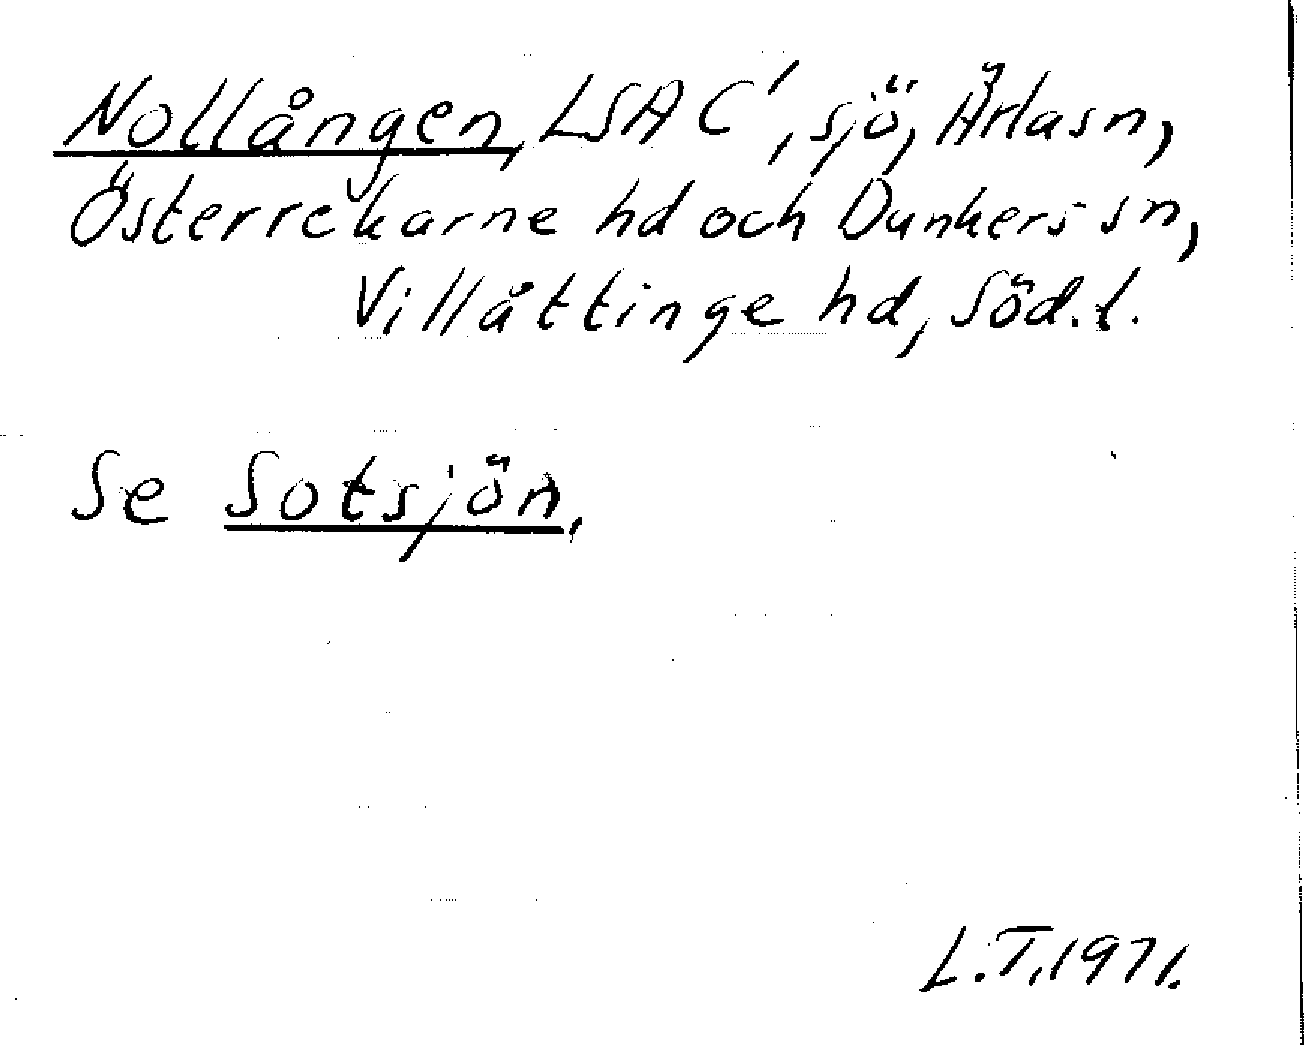 Nollången, LSA C', sjö, Ärla sn,
Österrekarne hd och Dunkers sn,
Villåttinge hd, Söd. l.
Se Sotsjön.
L.T. 1971.